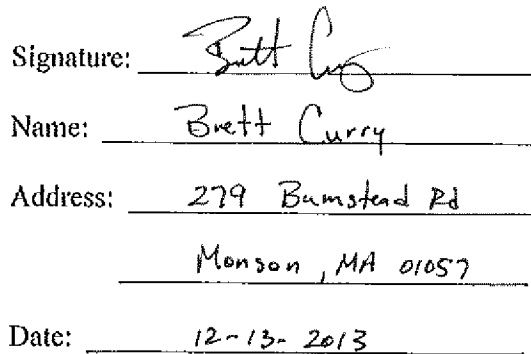 Signature: Brett Curry
Name: Brett Curry
Address: 279 Bumstead Rd
Monson, MA 01057
Date: 12-13-2013